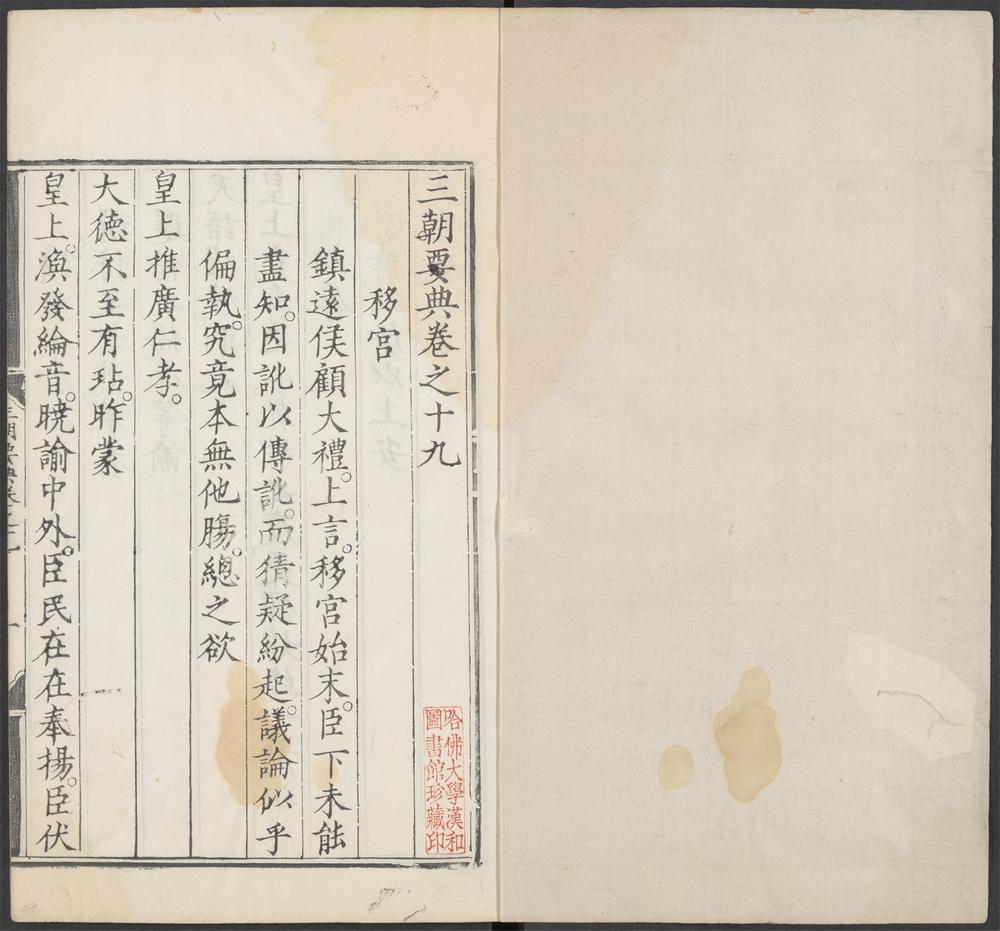 三朝要典卷之十九
移宮
鎮遠侯顧大禮。上言。移宮始末。臣下未能
盡知。因訛以傳訛。而猜疑紛起。議論似乎
偏執。究竟本無他腸。總之欲
皇上推廣仁孝。
大德不至有玷。昨蒙
皇上。渙發綸音。曉諭中外。臣民在在奉揚。臣伏
哈佛大學漢和
圖書館珍藏印